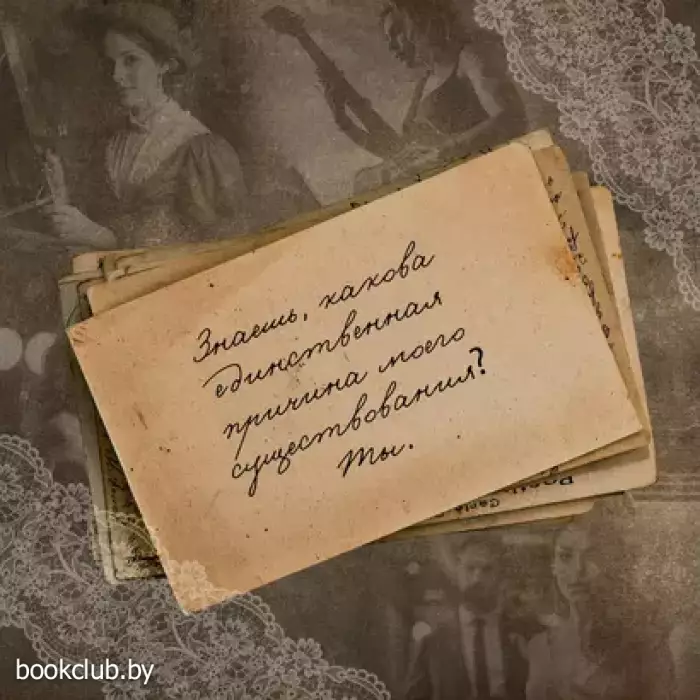 Знаешь, какова
единственная
причина моего
существования?
Ты.
bookclub.by